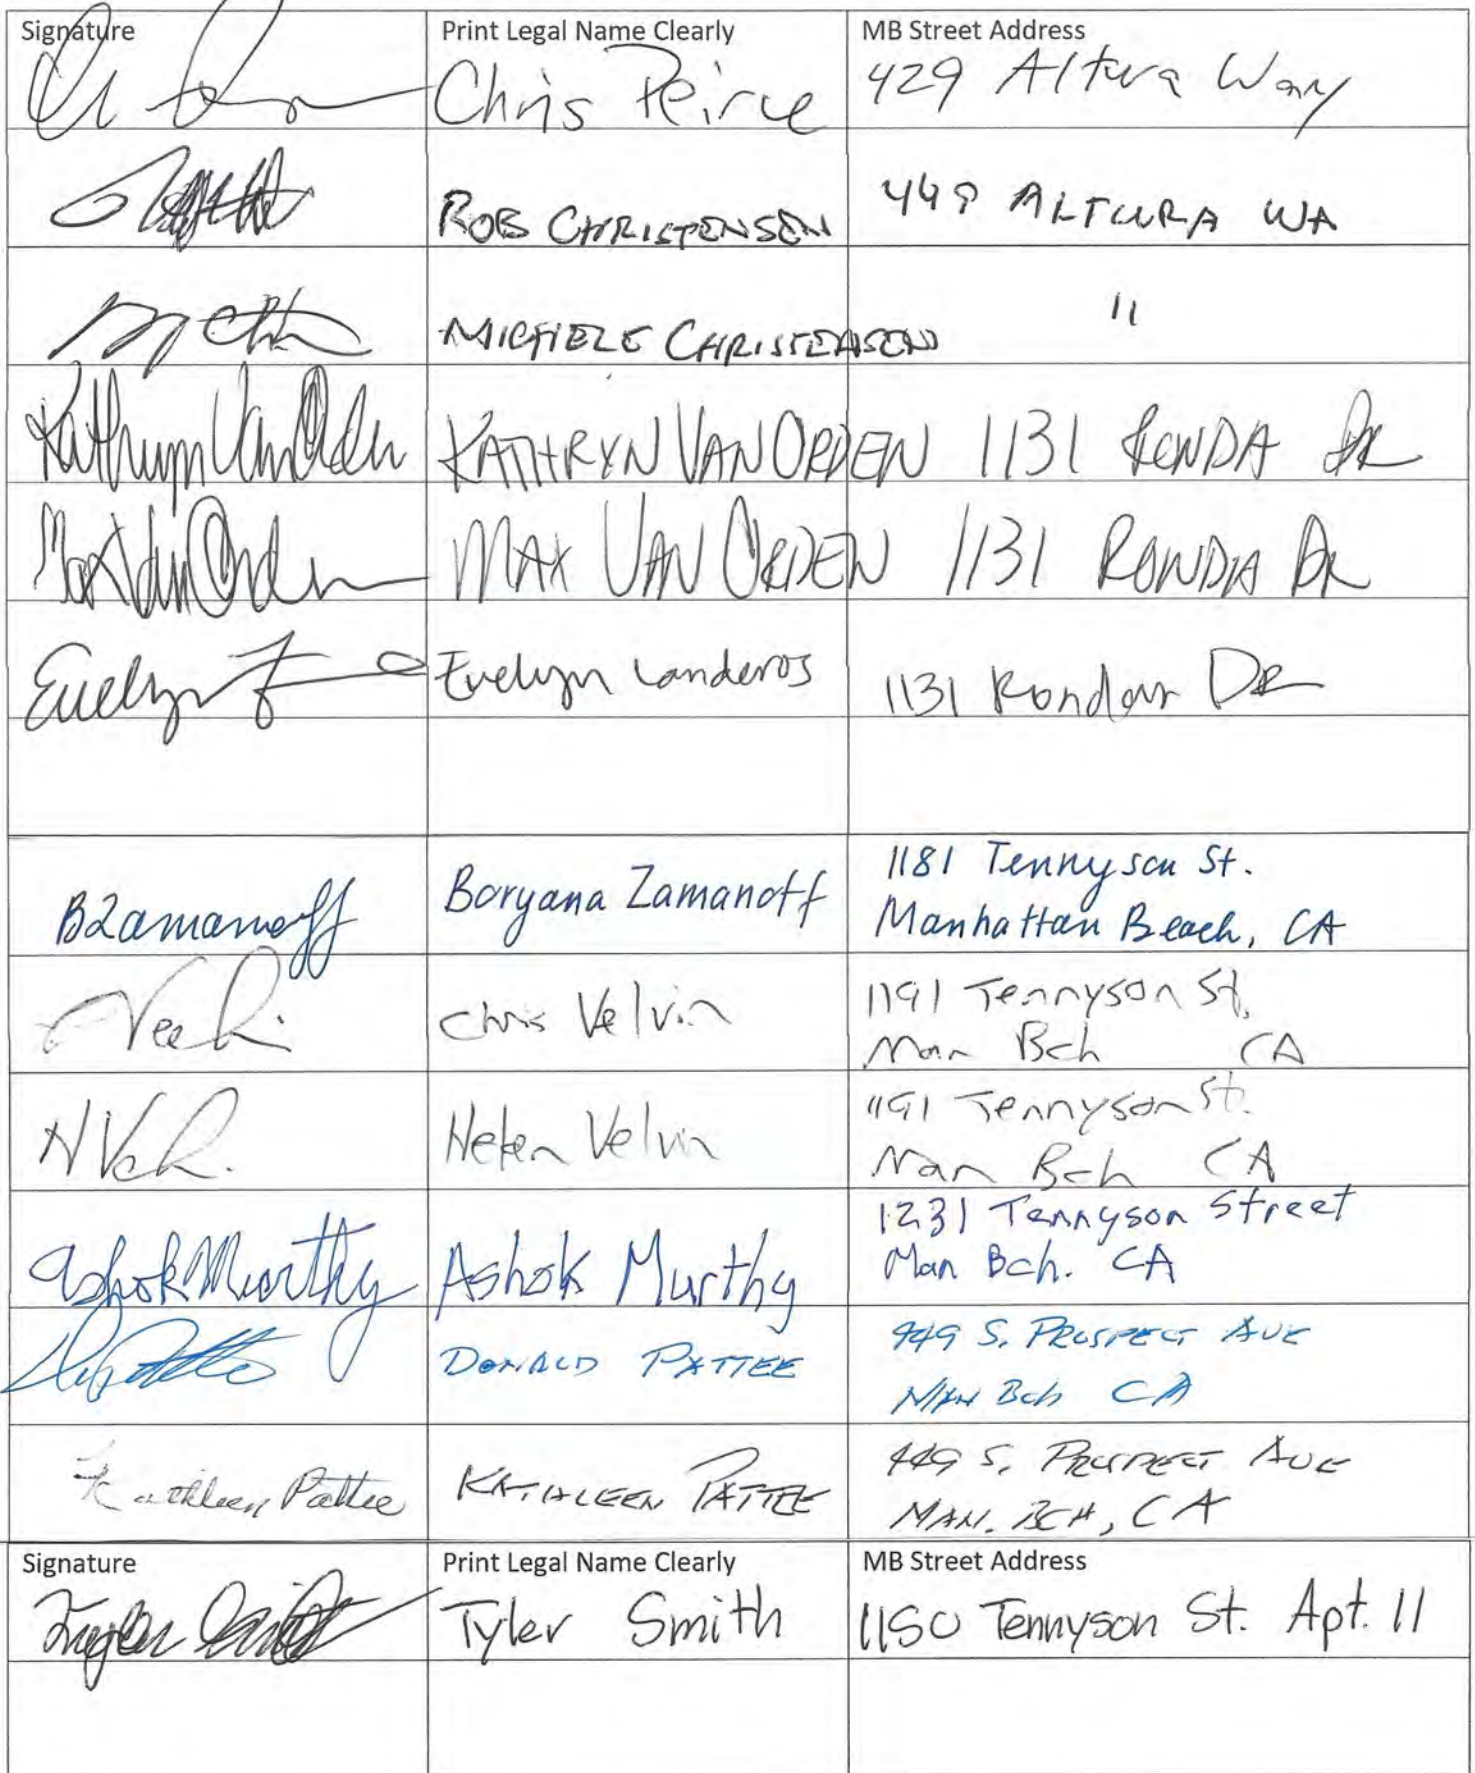 Signature Print Legal Name Clearly MB Street Address
Chris Peirce 429 Altura Way
ROB CHRISTENSEN 449 ALTURA WA
MICHELE CHRISTENSEN "
Kathryn Van Orden KATHRYN VAN ORDEN 1131 RONDA DR
Max Van Orden MAX VAN ORDEN 1131 RONDA DR
Evelyn Evelyn Landeros 1131 Ronda Dr
BZamanoff Boryana Zamanoff 1181 Tennyson St.
Manhattan Beach, CA
Chris Velvin 1191 Tennyson St.
Man Bch CA
Helen Velvin 1191 Tennyson St.
Man Bch CA
Ashok Murthy Ashok Murthy 1231 Tennyson Street
Man Bch. CA
DONALD PATTEE 449 S. PROSPECT AVE
MAN Bch CA
Kathleen Pattee KATHLEEN PATTEE 449 S. PROSPECT AVE
MAN. BCH, CA
Signature Print Legal Name Clearly MB Street Address
Tyler Smith Tyler Smith 1150 Tennyson St. Apt. 11